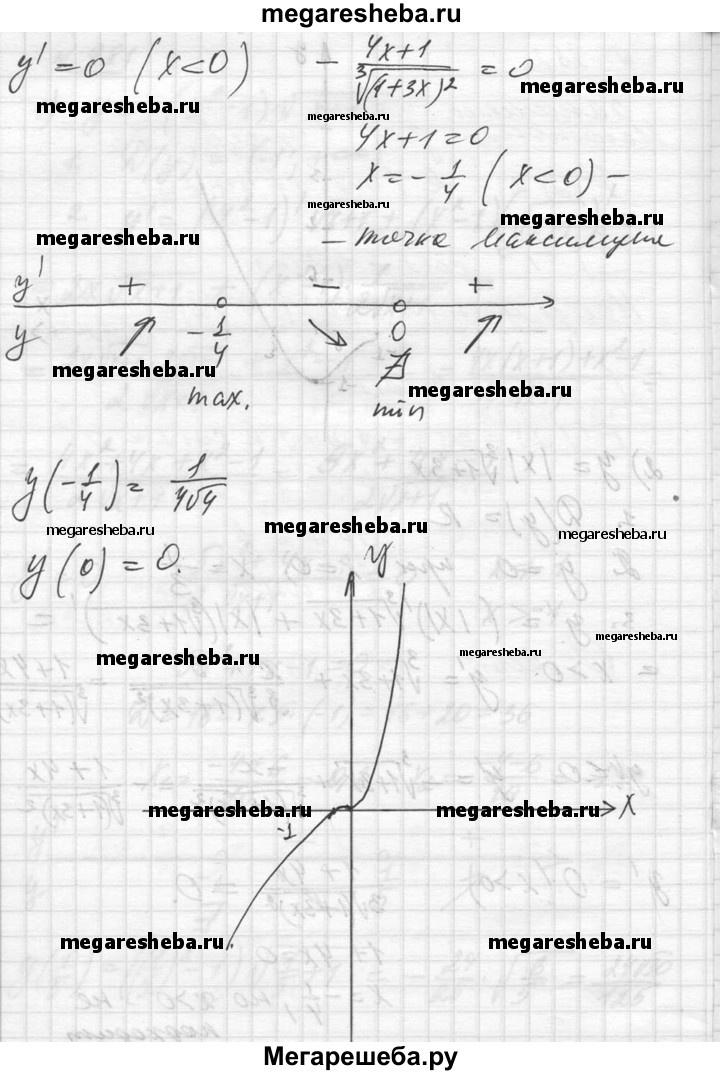 megaresheba.ru
y' = 0 (x<0) - 4x+1/∛(1+3x)² = 0
megaresheba.ru
megaresheba.ru
megaresheba.ru
4x+1=0
x=-1/4 (x<0) -
megaresheba.ru
megaresheba.ru
- точка максимума
y' + - +
y -1/4 0
megaresheba.ru
megaresheba.ru
max. min
y(-1/4) = 1/4∛4
megaresheba.ru
megaresheba.ru
megaresheba.ru
y(0) = 0.
y
megaresheba.ru
megaresheba.ru
megaresheba.ru
megaresheba.ru
megaresheba.ru
x
-1
megaresheba.ru
megaresheba.ru
Мегарешеба.ру